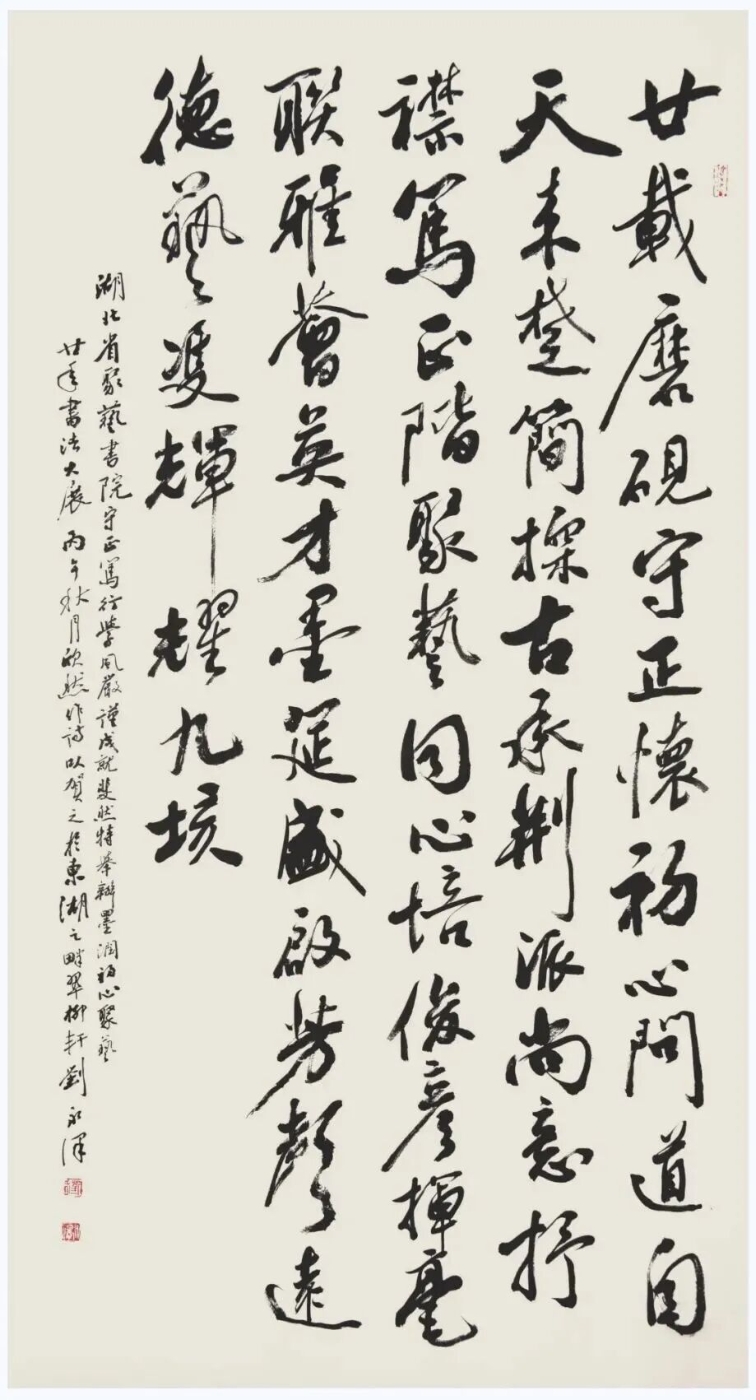 廿載磨硯守正懷初心問道自
天來楚簡探古承荆派尚意抒
襟篤正階聚藝同心培俊彥揮毫
聯雅薈英才墨筵盛啟芳聲遠
德藝雙輝耀九垓
湖北省聚藝書院守正篤行學風嚴謹成就斐然特舉辦墨潤初心聚藝
廿年書法大展丙午秋月欣然作詩以賀之於東湖之畔翠柳軒劉永澤